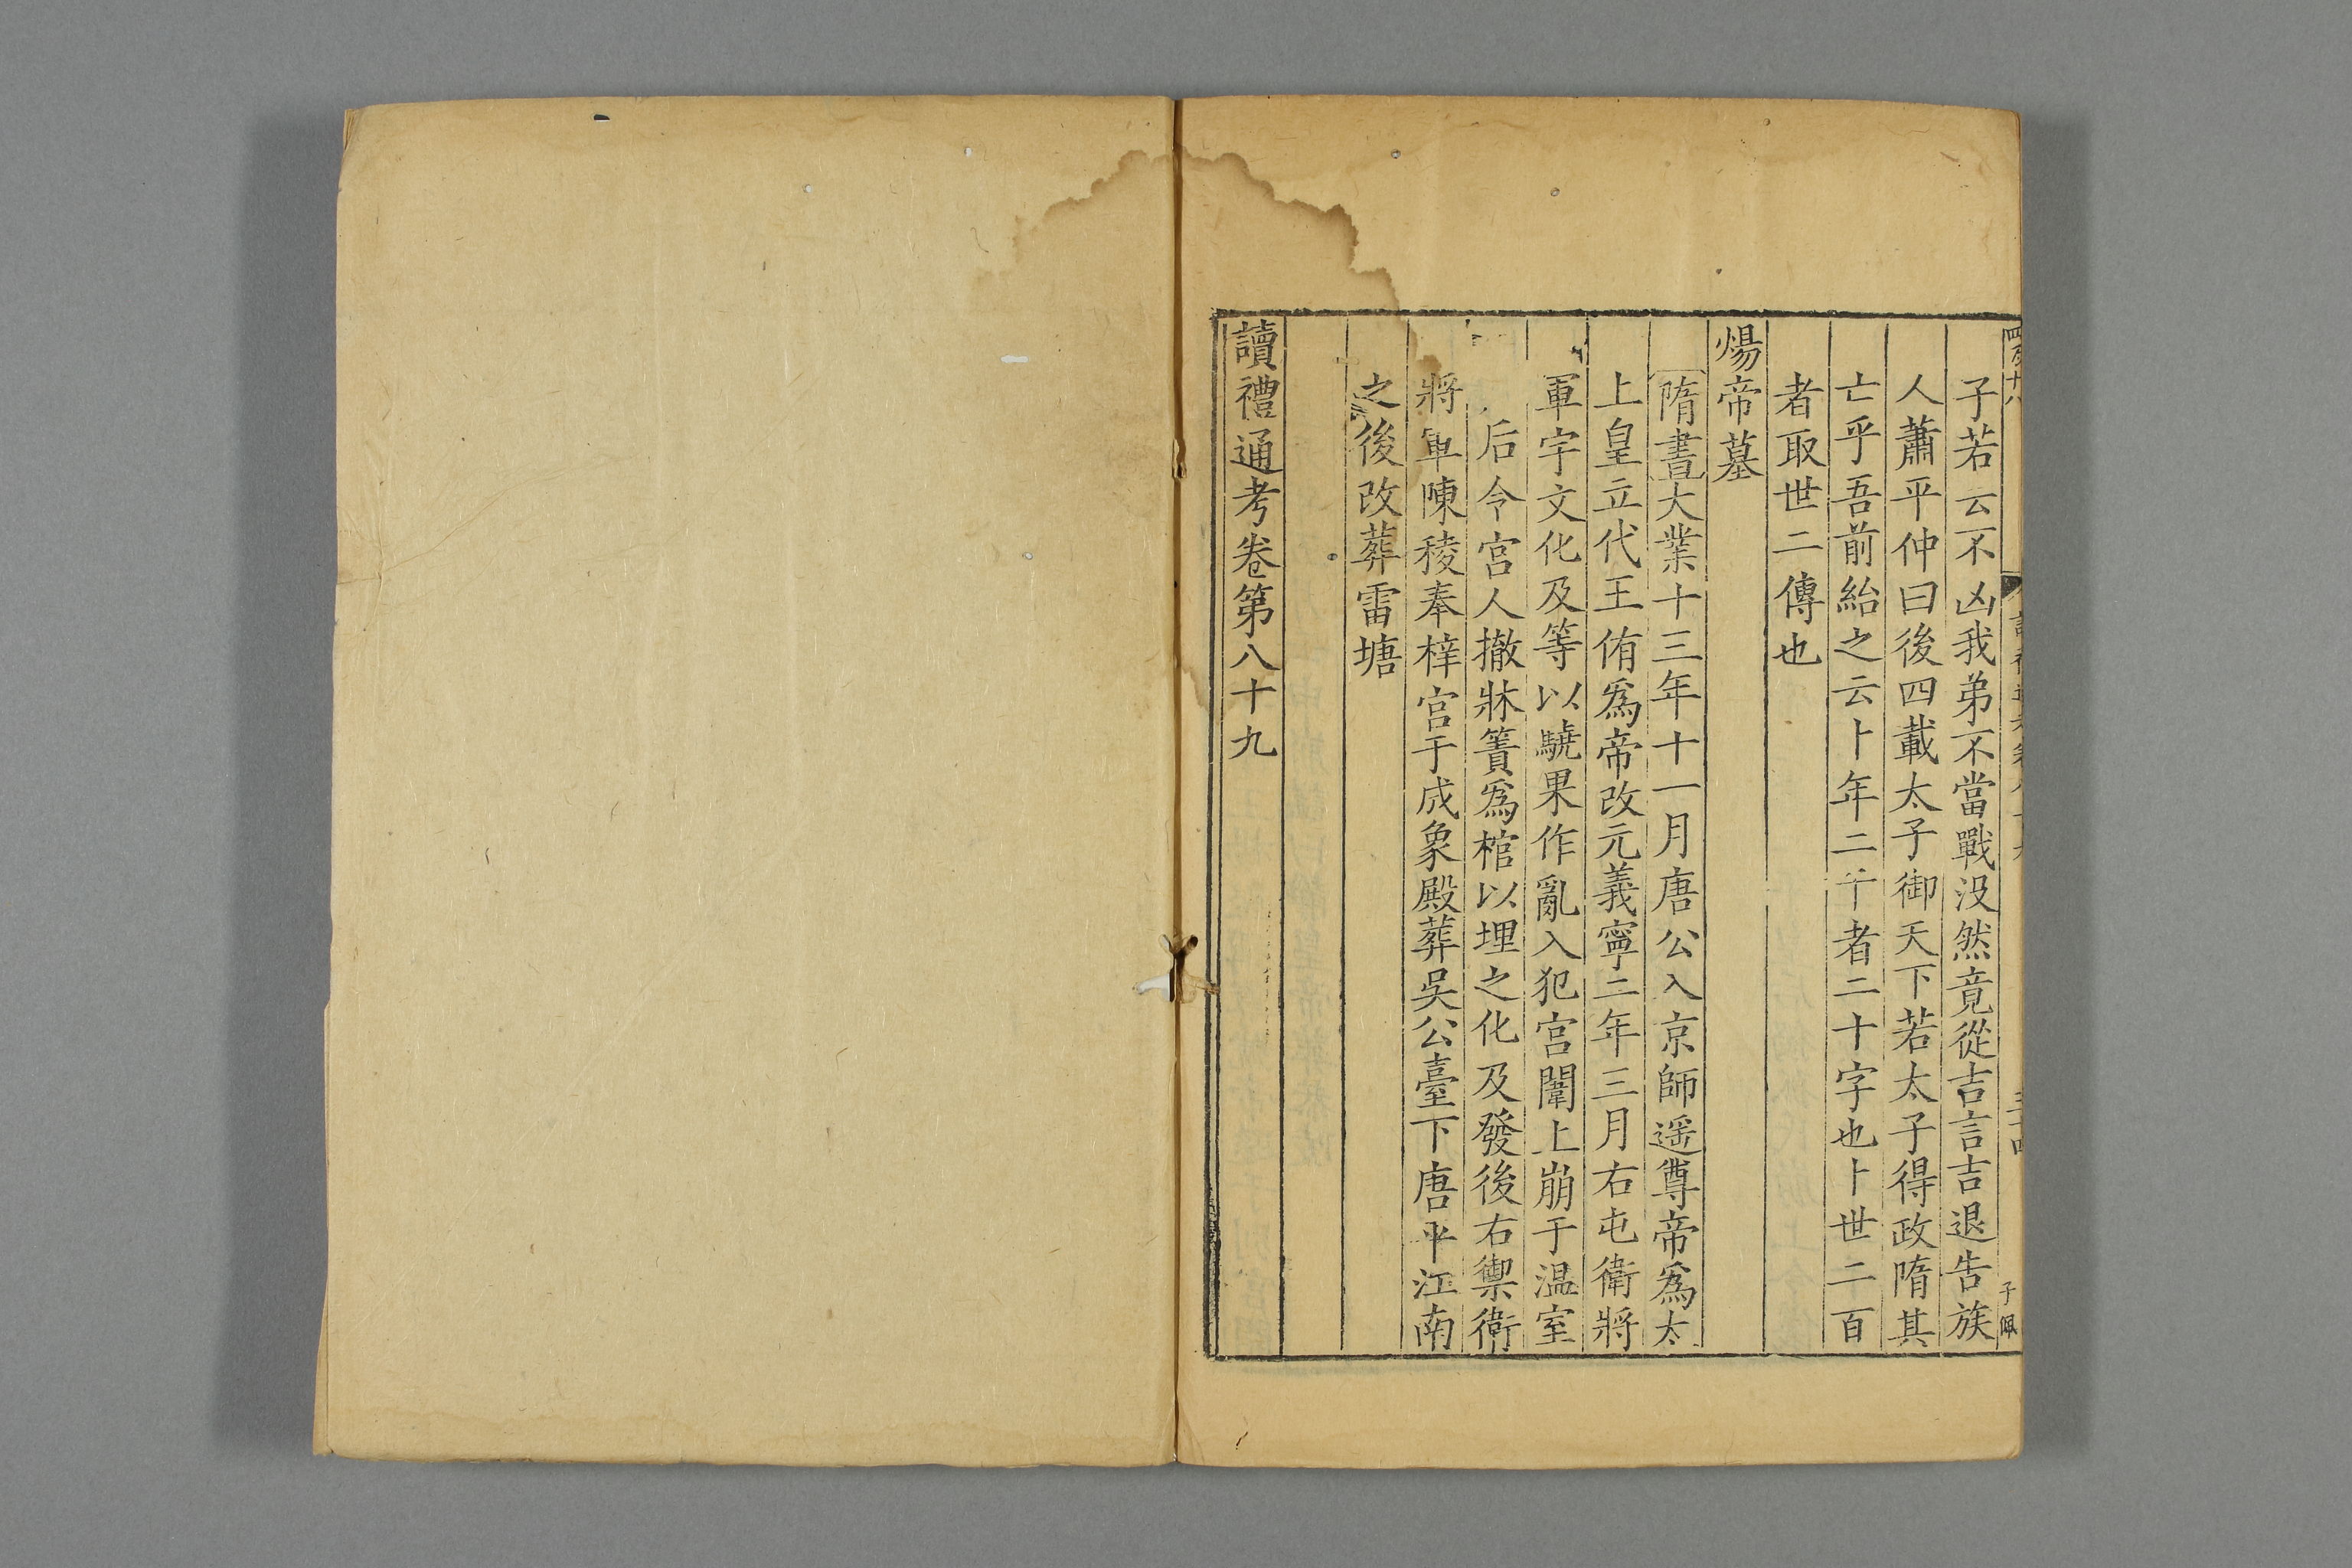 子若云不凶我弟不當戰没然竟從吉言吉退告族
人蕭平仲曰後四載太子御天下若太子得政隋其
亡乎吾前紿之云卜年二千者二十字也卜世二百
者取世二傳也
煬帝墓
隋書大業十三年十一月唐公入京師遥尊帝爲太
上皇立代王侑爲帝改元義寧二年三月右屯衛將
軍宇文化及等以驍果作亂入犯宫闈上崩于温室
后令宫人撤牀簀爲棺以埋之化及發後右禦衛
將軍陳稜奉梓宫于成象殿葬吳公臺下唐平江南
之後改葬雷塘
讀禮通考卷第八十九
子佩